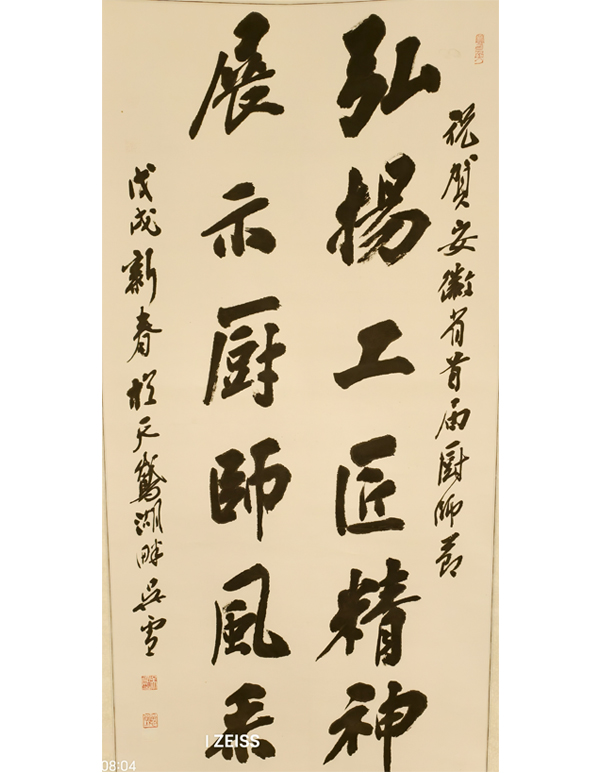 祝賀安徽省首届厨師節
弘揚工匠精神
展示厨師風采
戊戌新春於天鵝湖畔吳雪
ZEISS
08:04